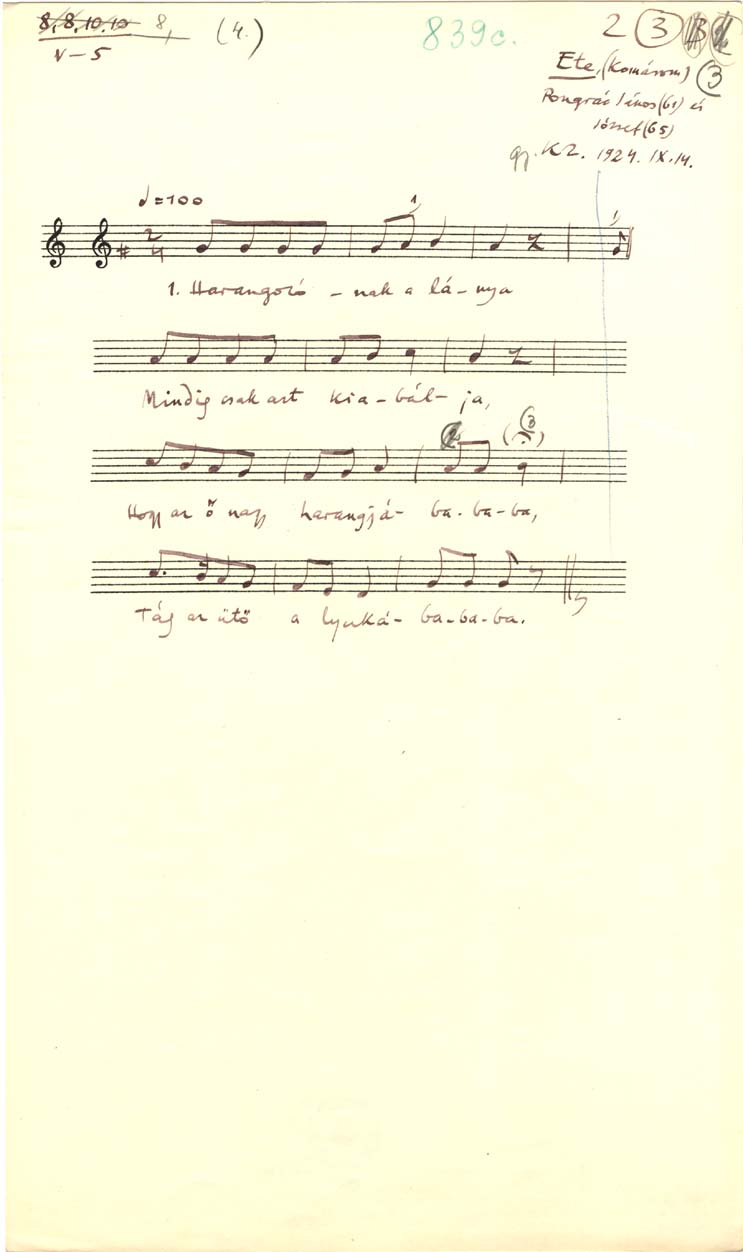 8, 8, 10, 10 8,
V-5
(4.)
839c.
2 (3)
Ete, (Komárom) (3)
Pongrác János (61) és
József (65)
gy. KZ. 1924. IX. 14.
♩=100
1. Harangozó - nak a lá - nya
Mindig csak azt kia - bál - ja,
Hogy az ő nagy harangjá - ba - ba - ba,
Tág az ütő a lyuká - ba - ba - ba.